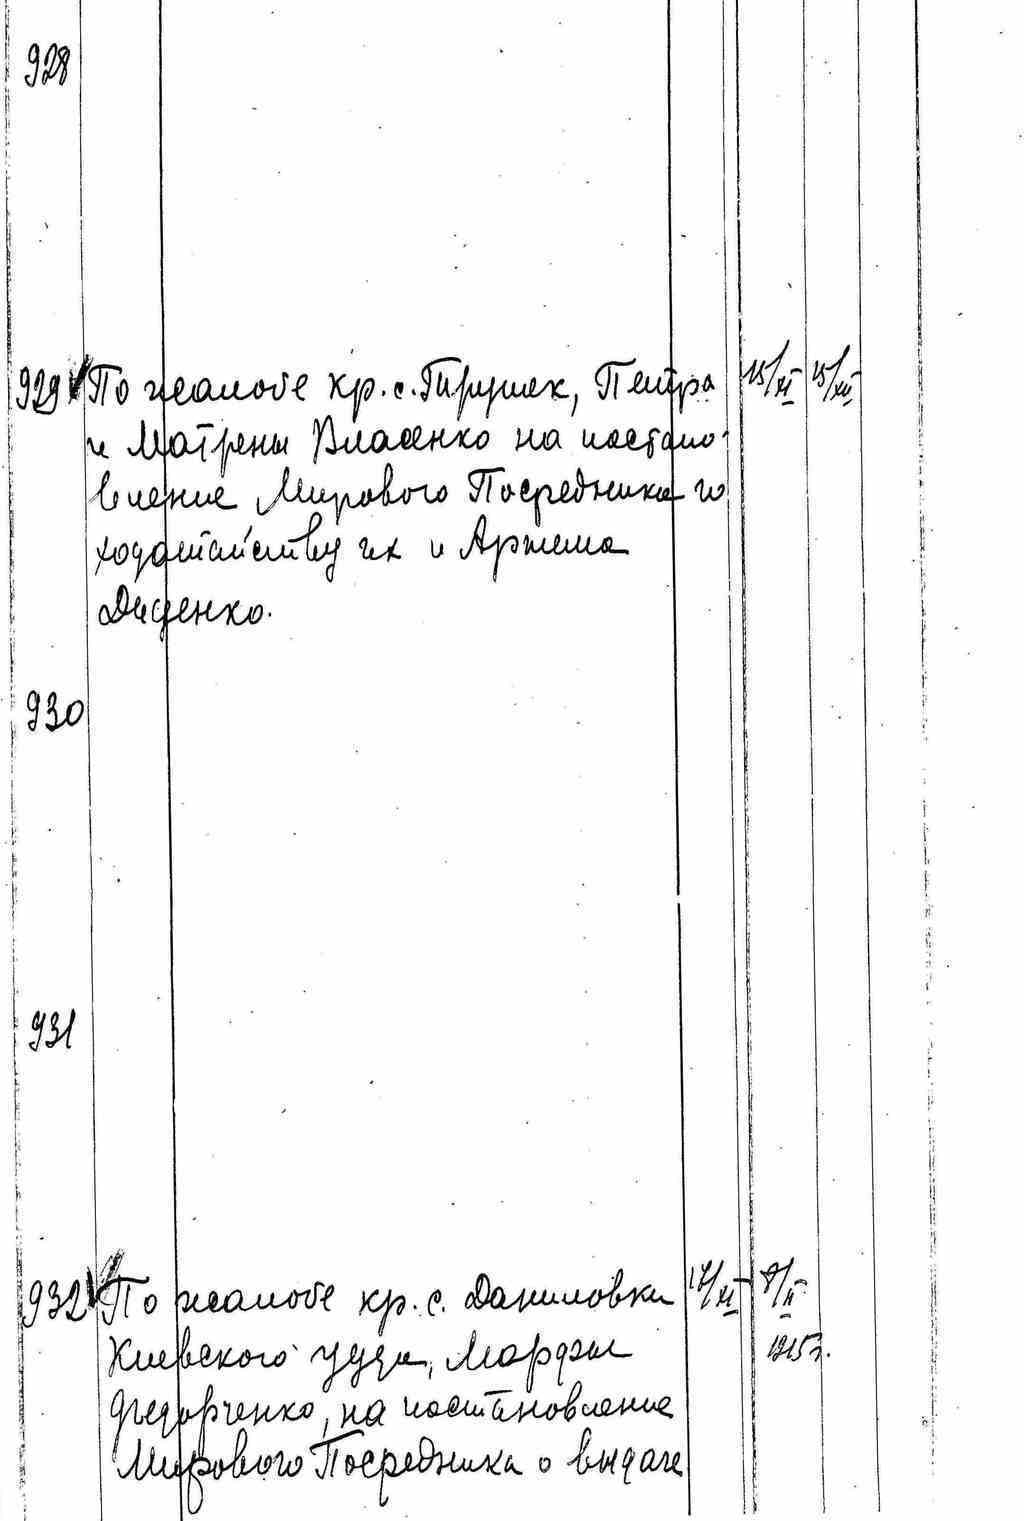 928
929 По жалобе кр. с. Гирушек, Петра 15/XI 15/XII
и Матрены Власенко на постано-
вление Мирового Посредника по
ходатайству их и Артема
Диденко.
930
931
932 По жалобе кр. с. Даниловки 17/XI 9/II
Киевского уезда, Марфы 1915 г.
Федорченко, на постановление
Мирового Посредника о выдаче